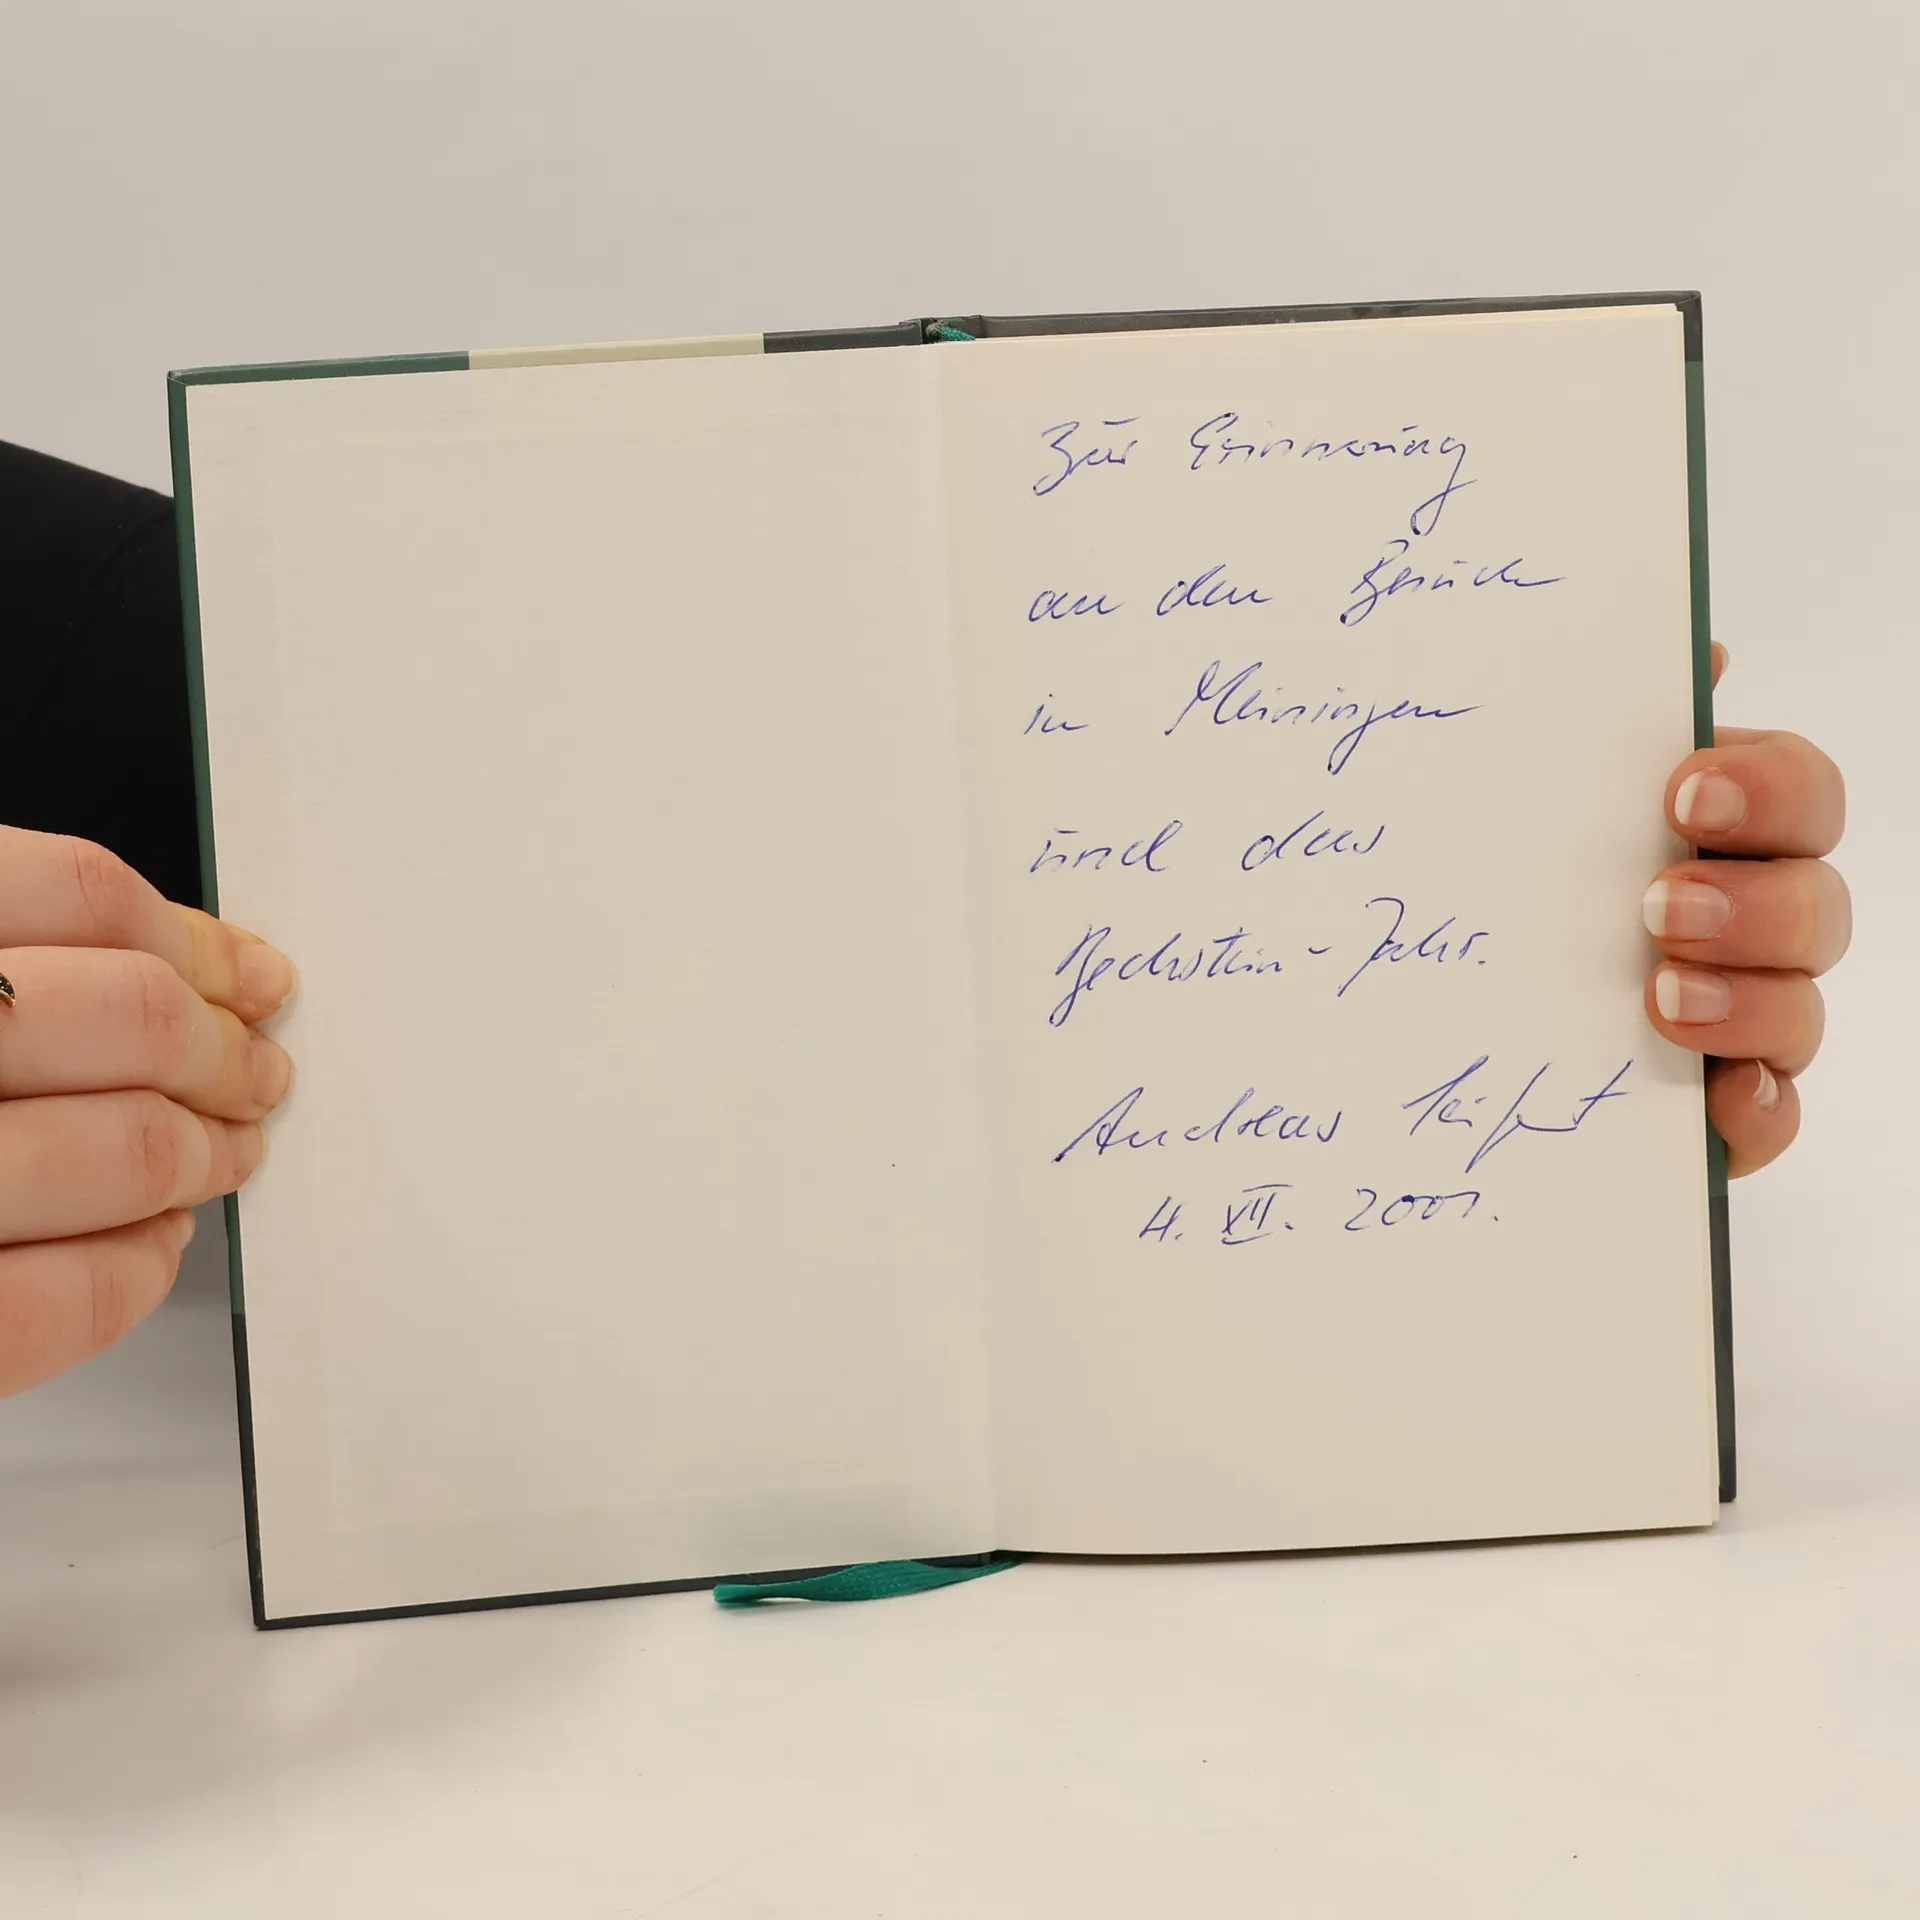 Zur Erinnerung
an den Besuch
in Meiningen
und das
Bechstein-Jahr.
Andreas Seifert
4. XII. 2001.